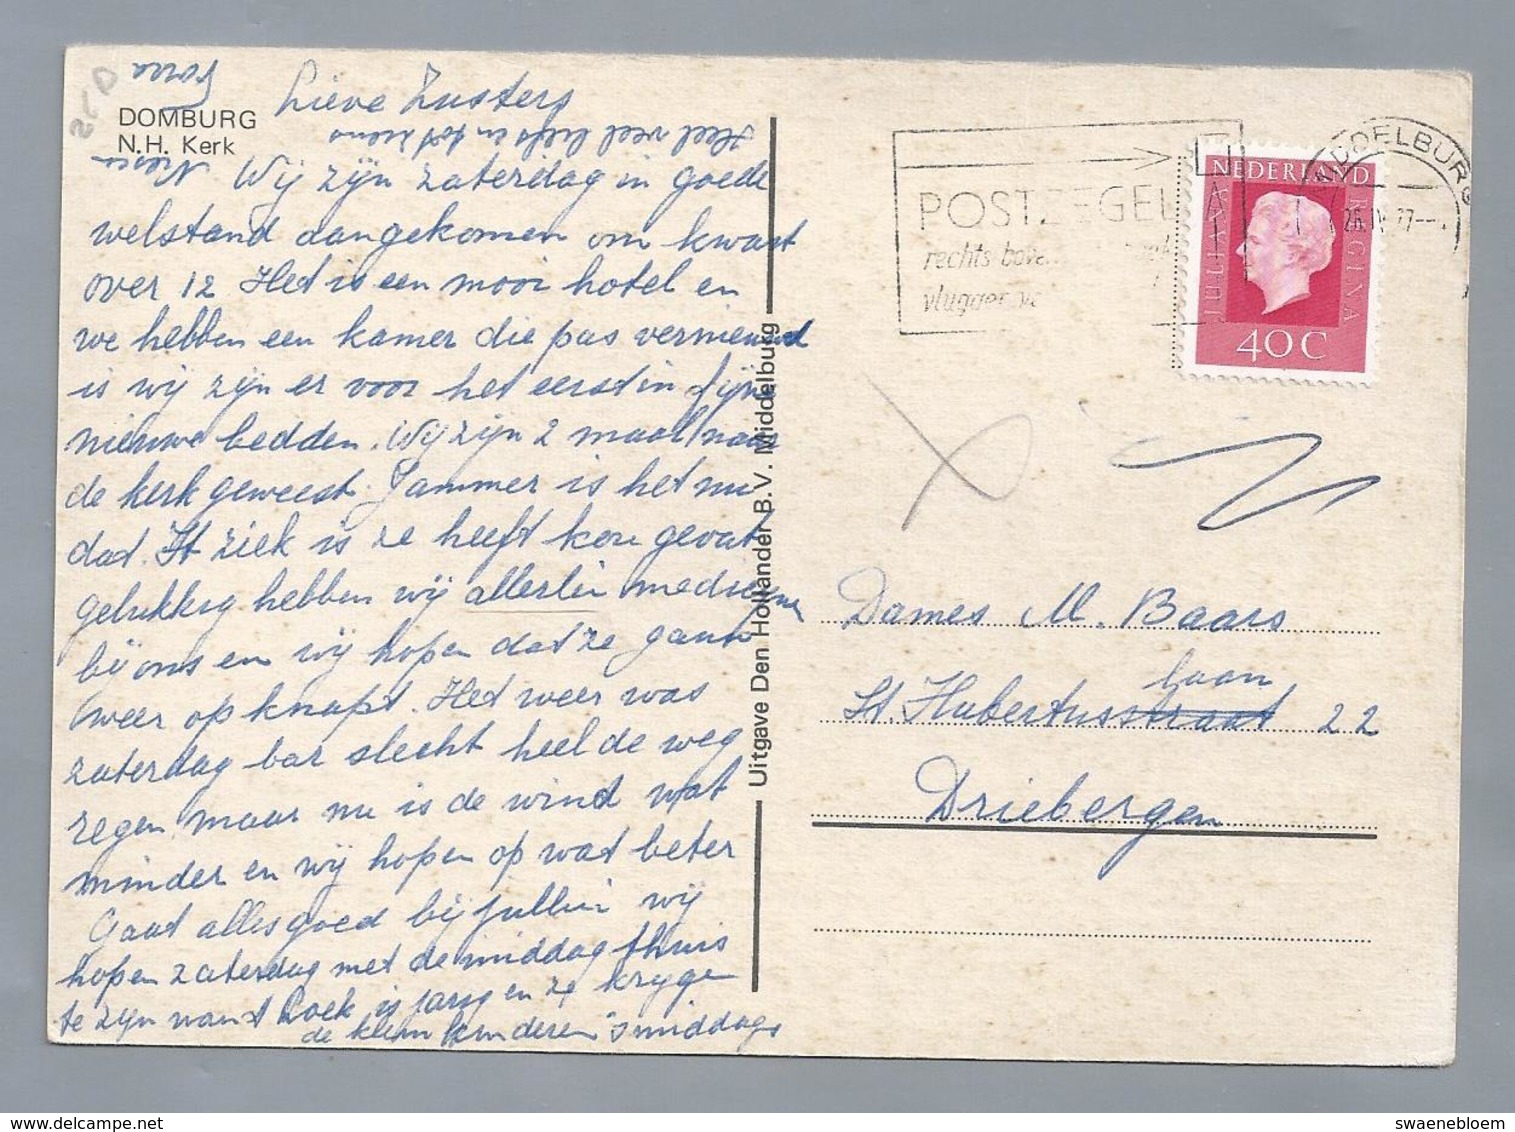 DOMBURG
N.H. Kerk
Lieve Zusters
Wij zijn zaterdag in goede
welstand aangekomen om kwart
over 12 Het is een mooi hotel en
we hebben een kamer die pas vernieuwd
is wij zijn er voor het eerst in fijne
nieuwe bedden. Wij zijn 2 maal naar
de kerk geweest. Jammer is het nu
dat. It ziek is ze heeft kou gevat
gelukkig hebben wij allerlei medicijnen
bij ons en wij hopen dat ze gauw
weer op knapt. Het weer was
zaterdag bar slecht heel de weg
regen maar nu is de wind wat
minder en wij hopen op wat beter
Gaat alles goed bij jullie wij
hopen zaterdag met de middag thuis
te zijn want Loek is jarig en ze krijgen
de klein kinderen 's middags
Heel veel liefs en tot ziens
Uitgave Den Hollander B.V. Middelburg
POSTZEGEL
rechts
vlugger
MIDDELBURG
NEDERLAND
JULIANA
REGINA
40C
Dames M. Baars
laan
St. Hubertusstraat 22
Driebergen
www.delcampe.net
swaenebloem